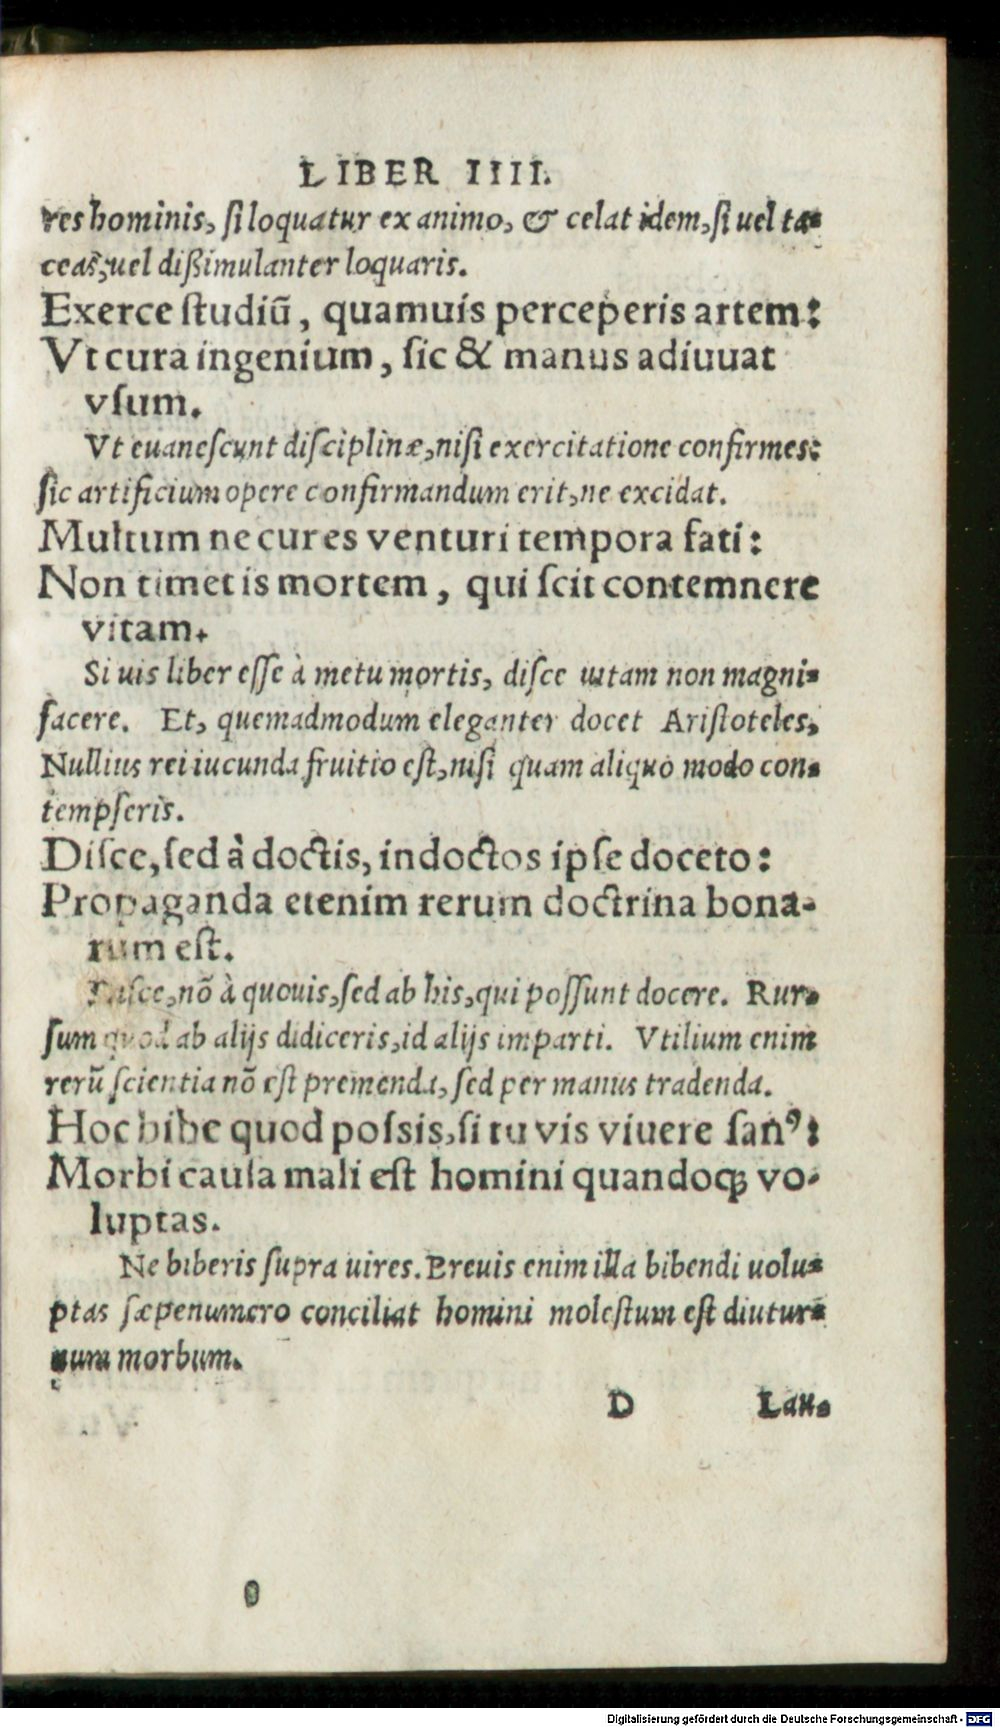 LIBER IIII.
res hominis, si loquatur ex animo, & celat idem, si uel ta-
ceas, uel dißimulanter loquaris.
Exerce studiũ, quamuis perceperis artem:
Vt cura ingenium, sic & manus adiuuat
vsum.
Vt euanescunt disciplinæ, nisi exercitatione confirmes:
sic artificium opere confirmandum erit, ne excidat.
Multum ne cures venturi tempora fati:
Non timet is mortem, qui scit contemnere
vitam.
Si uis liber esse à metu mortis, disce uitam non magni-
facere. Et, quemadmodum eleganter docet Aristoteles,
Nullius rei iucunda fruitio est, nisi quam aliquo modo con-
tempseris.
Disce, sed à doctis, indoctos ipse doceto:
Propaganda etenim rerum doctrina bona-
rum est.
Disce, nõ à quouis, sed ab his, qui possunt docere. Rur-
sum quod ab alijs didiceris, id alijs imparti. Vtilium enim
rerũ scientia nõ est premenda, sed per manus tradenda.
Hoc bibe quod possis, si tu vis viuere sanꝰ:
Morbi causa mali est homini quandoqꝫ vo-
luptas.
Ne biberis supra uires. Breuis enim illa bibendi uolu-
ptas sæpenumero conciliat homini molestum est diutur-
num morbum.
D Lau-
Digitalisierung gefördert durch die Deutsche Forschungsgemeinschaft - DFG